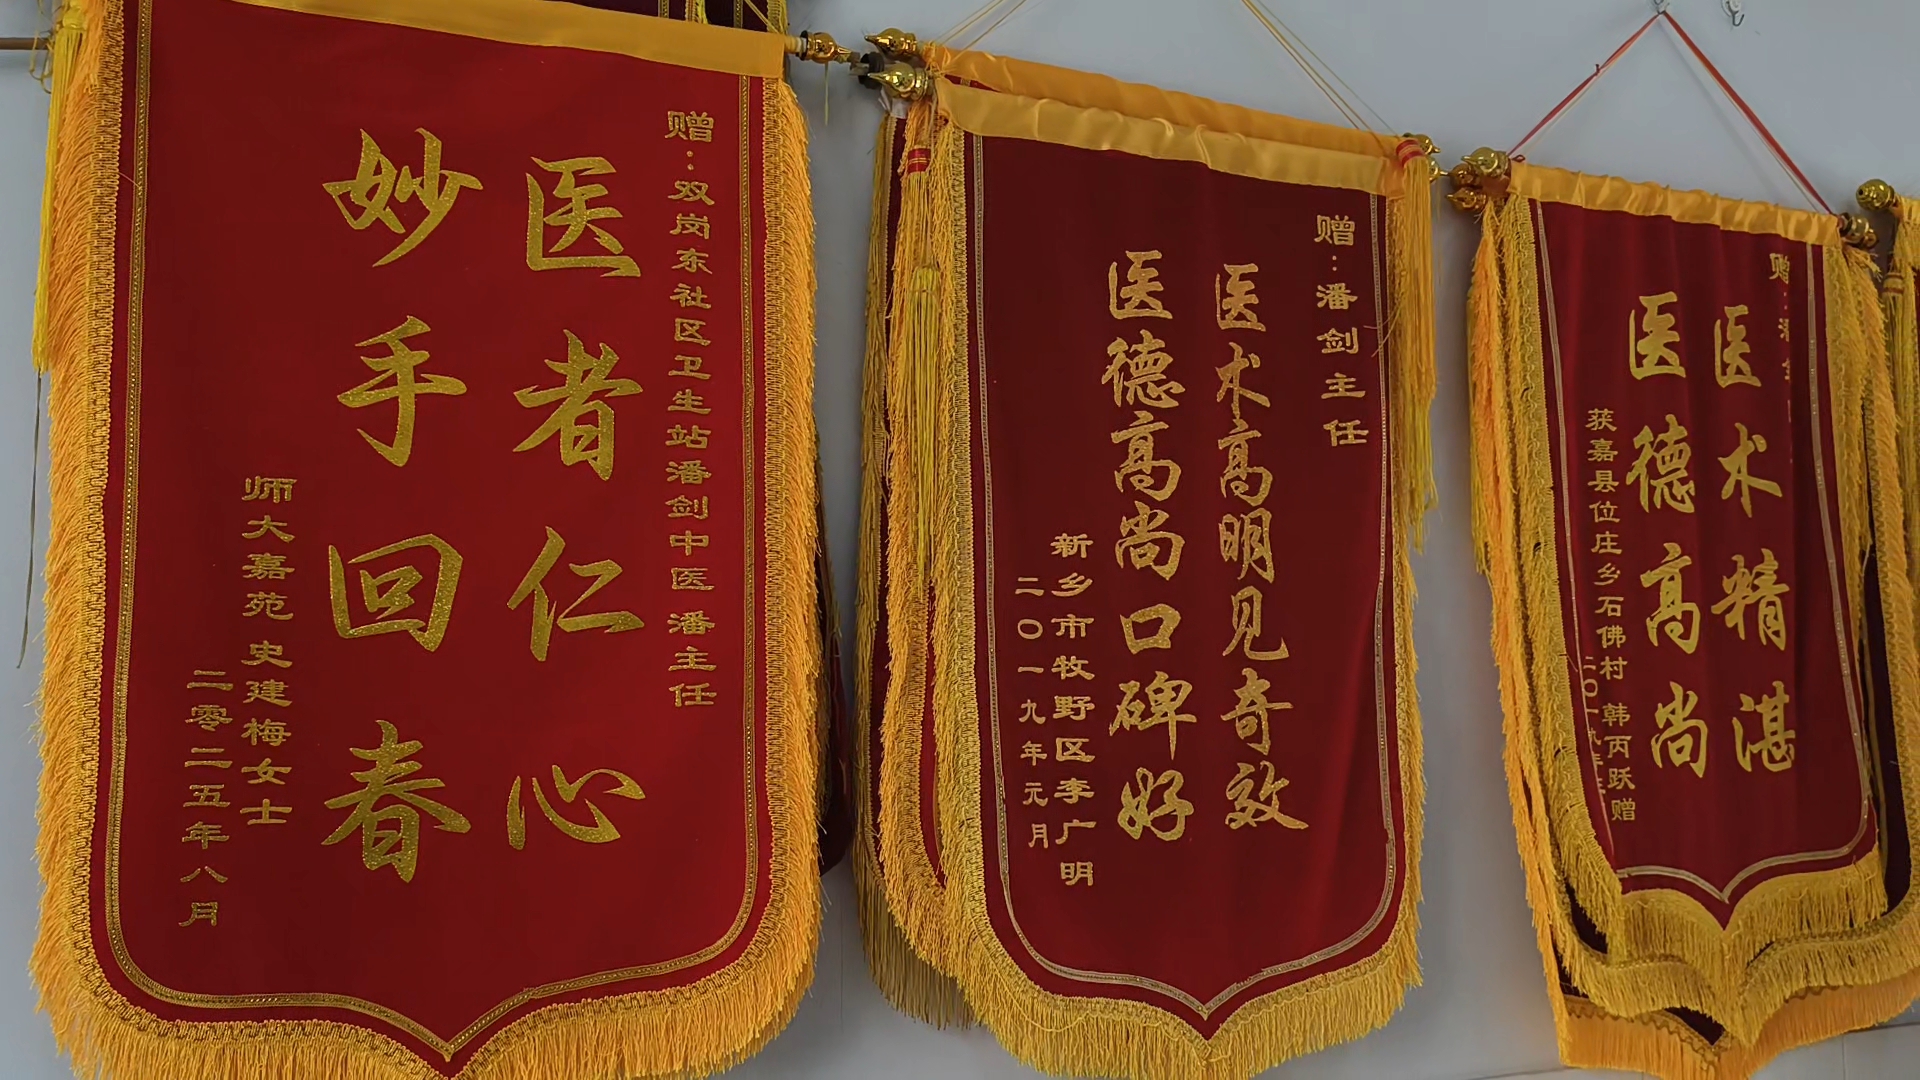 赠：双岗东社区卫生站潘剑中医 潘主任
医者仁心
妙手回春
师大嘉苑 史建梅女士
二零二五年八月
赠：潘剑主任
医术高明见奇效
医德高尚口碑好
新乡市牧野区李广明
二〇一九年元月
赠：潘
医术精湛
医德高尚
获嘉县位庄乡石佛村 韩丙跃赠
二〇一九年